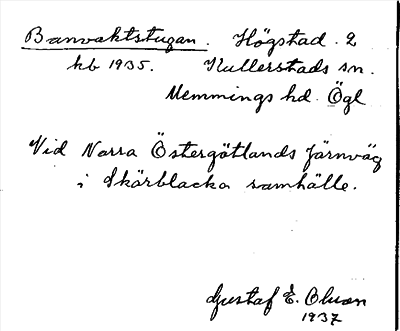 Banvaktstugan. Högstad. 2
kb 1935. Kullerstads sn.
Memmings hd. Ögl
Vid Norra Östergötlands järnväg
i Skärblacka samhälle.
Gustaf E. Olson
1937